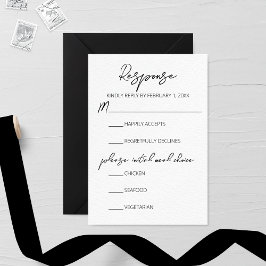 Response
KINDLY REPLY BY FEBRUARY 1, 20XX
M
HAPPILY ACCEPTS
REGRETFULLY DECLINES
please initial meal choice
CHICKEN
SEAFOOD
VEGETARIAN